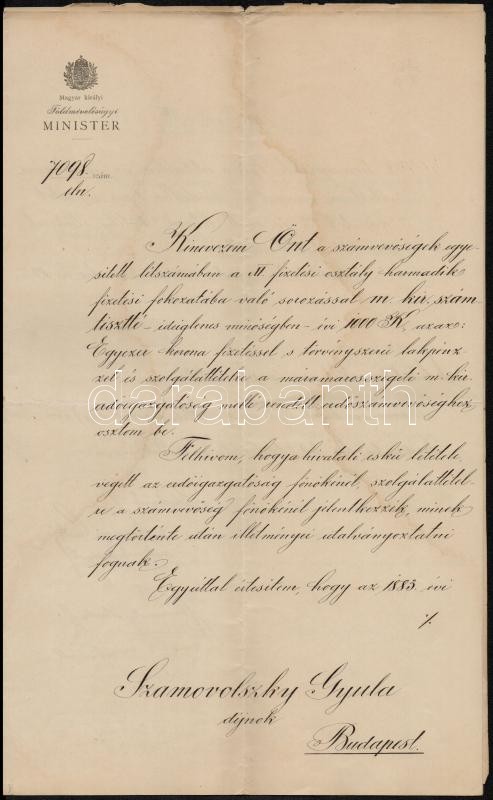 Magyar királyi
Földmivelésügyi
MINISTER
7098. szám.
eln.
Kinevezem Önt a számvevőségek egye-
sitett létszámában a XI fizetési osztály harmadik
fizetési fokozatába való sorozással m. kir. szám-
tisztté - ideiglenes minőségben - évi 1000 K, azaz:
Egyezer korona fizetéssel s törvényszerü lakpénz-
zel és szolgálattételre a máramarosszigeti m. kir.
erdőigazgatóság mellé rendelt erdőszámvevőséghez
osztom be.
Felhivom, hogy a hivatali eskü letétele
végett az erdőigazgatóság főnökénél, szolgálattétel-
re a számvevőség főnökénél jelentkezzék, minek
megtörténte után illetményei utalványoztatni
fognak.
Egyúttal értesitem, hogy az 1883. évi
./.
Szamovolszky Gyula
dijnok
Budapest.
darabanth